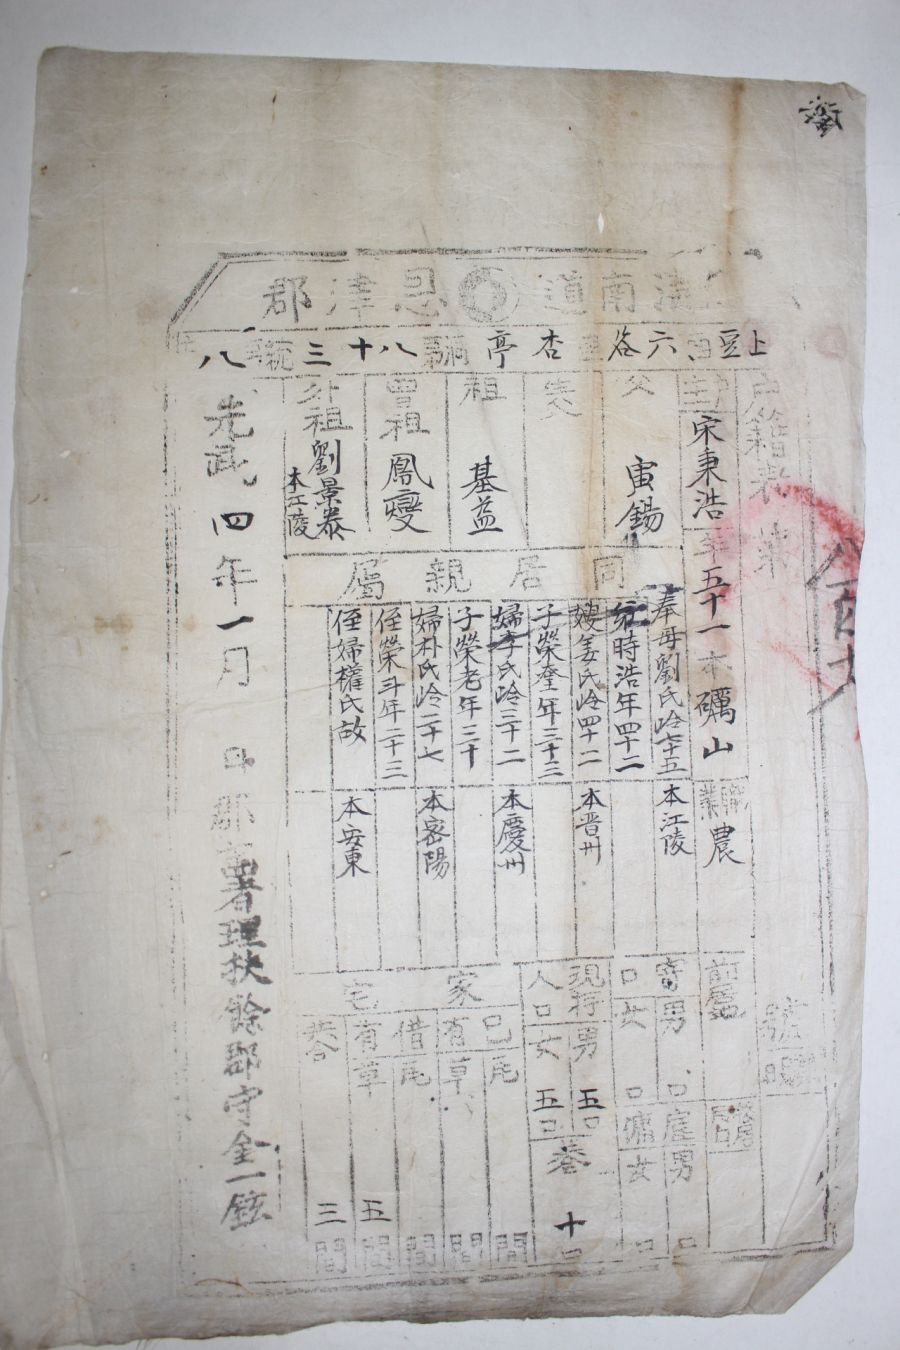 忠淸南道恩津郡
上豆面六谷里杏亭洞第八十三統八
戶籍表 第 號
戶主宋秉浩年五十一本礪山職業農
前居地
父寅錫
喪
祖基益
曾祖鳳燮
外祖劉景泰本江陵
同居親屬
奉母劉氏令七十五本江陵
時浩年四十二
嫂姜氏令四十二本晋州
子榮奎年三十三
婦李氏令三十二本慶州
子榮老年三十
婦朴氏令二十七本密陽
侄榮斗年二十三
侄婦權氏故本安東
寄口男口女口
雇傭男口女口
現存人口男五口女五口共十口
家宅
己有瓦間草間
借有瓦間草五間
共三間
光武四年一月 日郡守署理扶餘郡守金一鉉